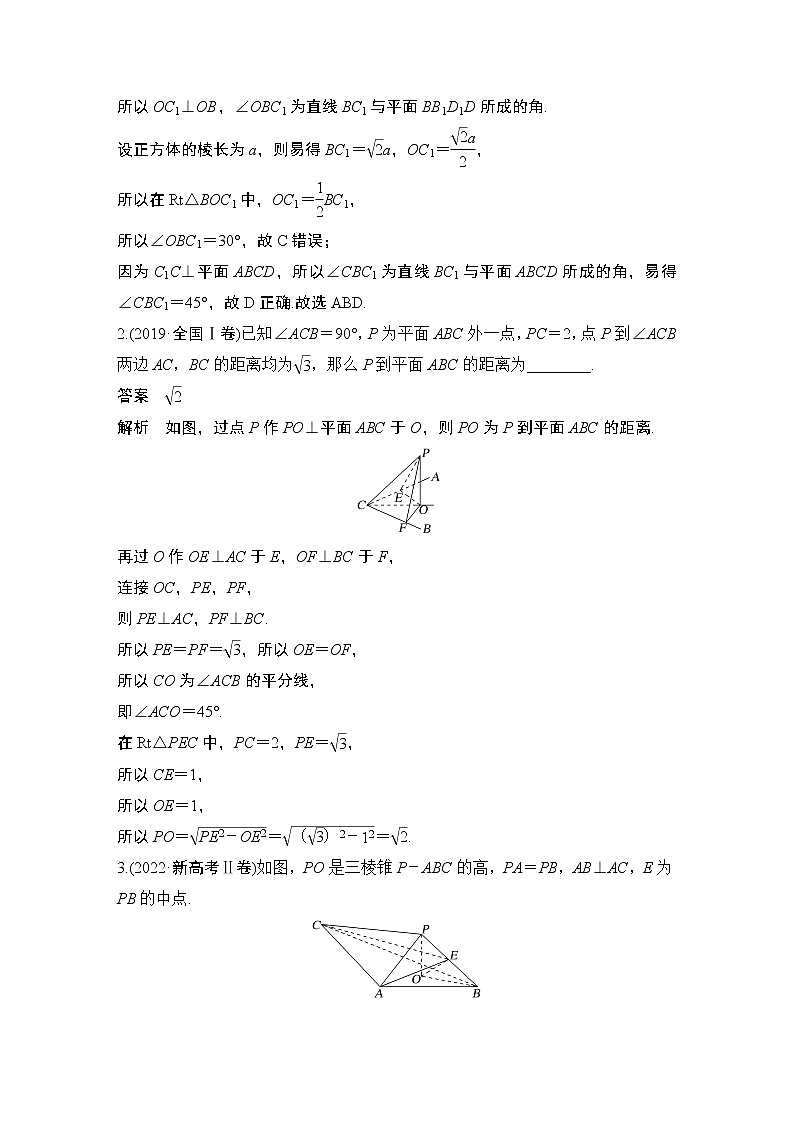 所以OC₁⊥OB，∠OBC₁为直线BC₁与平面BB₁D₁D所成的角.
设正方体的棱长为a，则易得BC₁＝√2a，OC₁＝√2a/2，
所以在Rt△BOC₁中，OC₁＝1/2BC₁，
所以∠OBC₁＝30°，故C错误；
因为C₁C⊥平面ABCD，所以∠CBC₁为直线BC₁与平面ABCD所成的角，易得
∠CBC₁＝45°，故D正确.故选ABD.
2.(2019·全国Ⅰ卷)已知∠ACB＝90°，P为平面ABC外一点，PC＝2，点P到∠ACB
两边AC，BC的距离均为√3，那么P到平面ABC的距离为________.
答案　√2
解析　如图，过点P作PO⊥平面ABC于O，则PO为P到平面ABC的距离.
P
A
E
C
O
F
B
再过O作OE⊥AC于E，OF⊥BC于F，
连接OC，PE，PF，
则PE⊥AC，PF⊥BC.
所以PE＝PF＝√3，所以OE＝OF，
所以CO为∠ACB的平分线，
即∠ACO＝45°.
在Rt△PEC中，PC＝2，PE＝√3，
所以CE＝1，
所以OE＝1，
所以PO＝√(PE²－OE²)＝√(（√3）²－1²)＝√2.
3.(2022·新高考Ⅱ卷)如图，PO是三棱锥P－ABC的高，PA＝PB，AB⊥AC，E为
PB的中点.
C
P
E
O
A
B